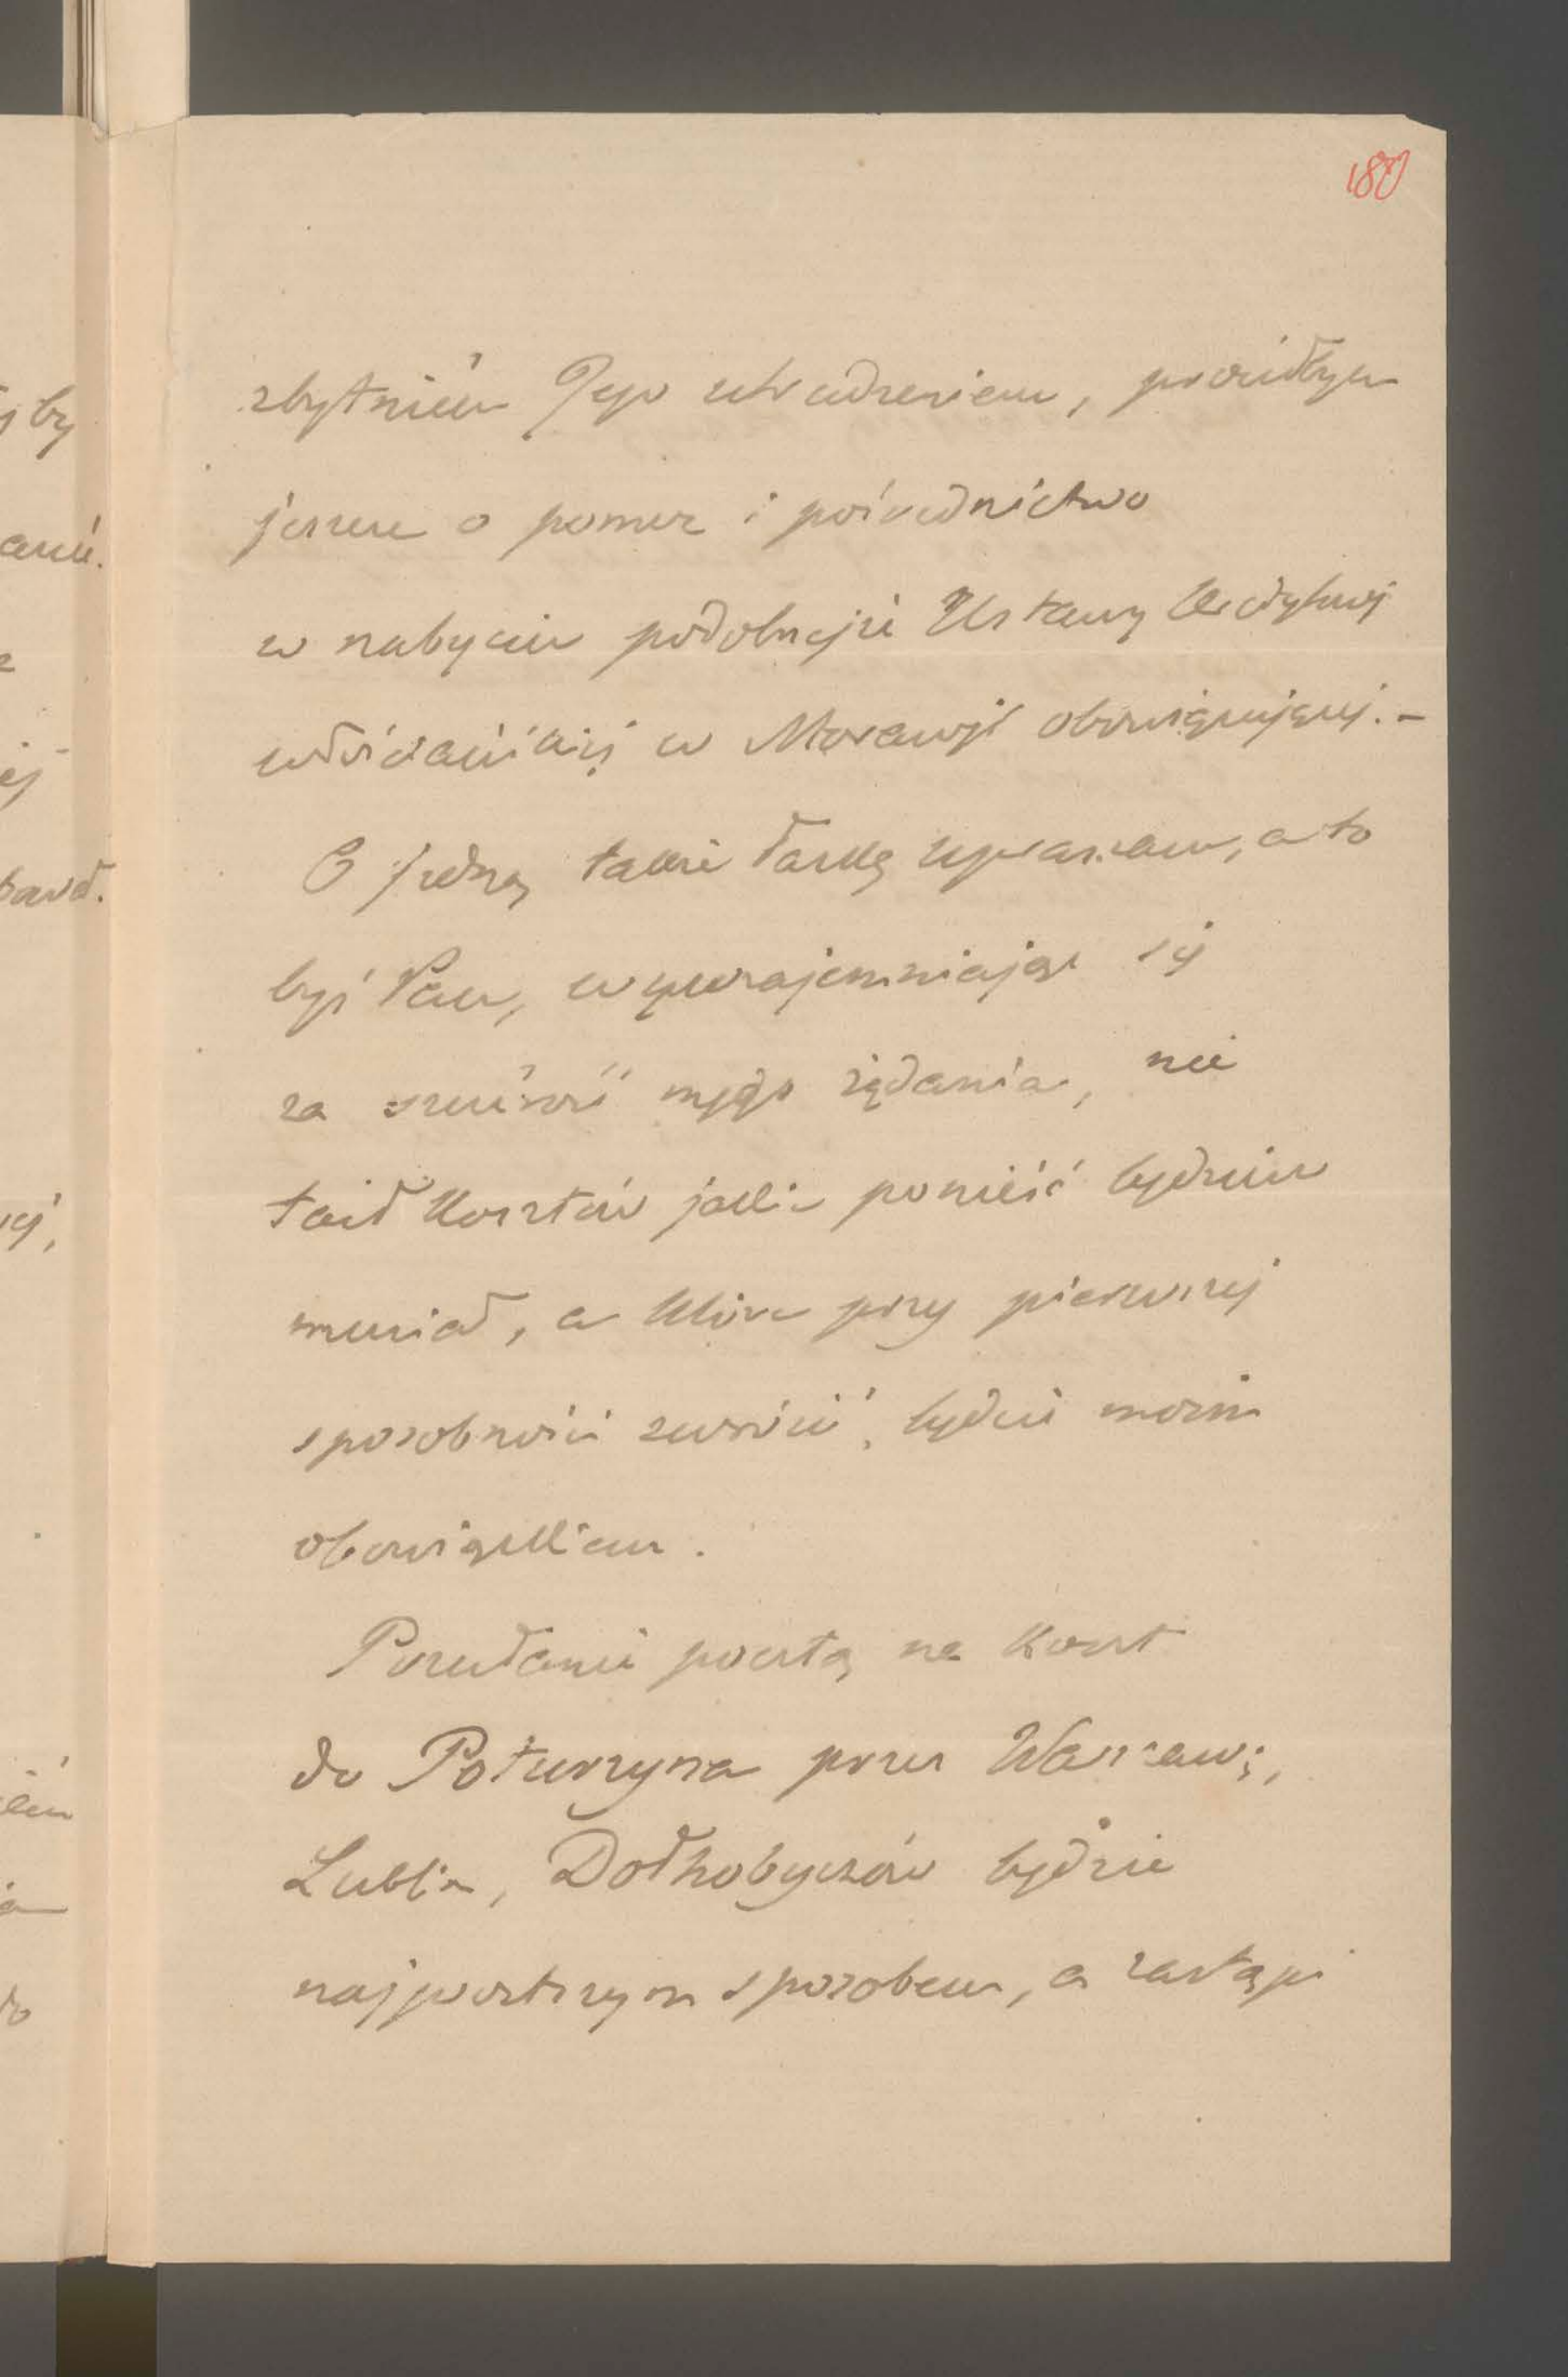 180
zbytniém Jego utrudzeniem, prosiłbym
jeszcze o pomoc i pośrednictwo
w nabyciu podobnejże Ustawy Kredytowej
włościańskiej w Morawji obowiązującej. -
O jedną także łaskę upraszam, a to
byś Pan, wywzajemniając się
za śmiałość mego żądania, nie
taił kosztów jakie ponieść będziesz
musiał, a które przy pierwszej
sposobności zwrócić, będzie moim
obowiązkiem.
Przesłanie pocztą na koszt
do Poturzyna przez Warszawę,
Lublin, Dołhobyczów będzie
najprostszym sposobem, a zastąpi